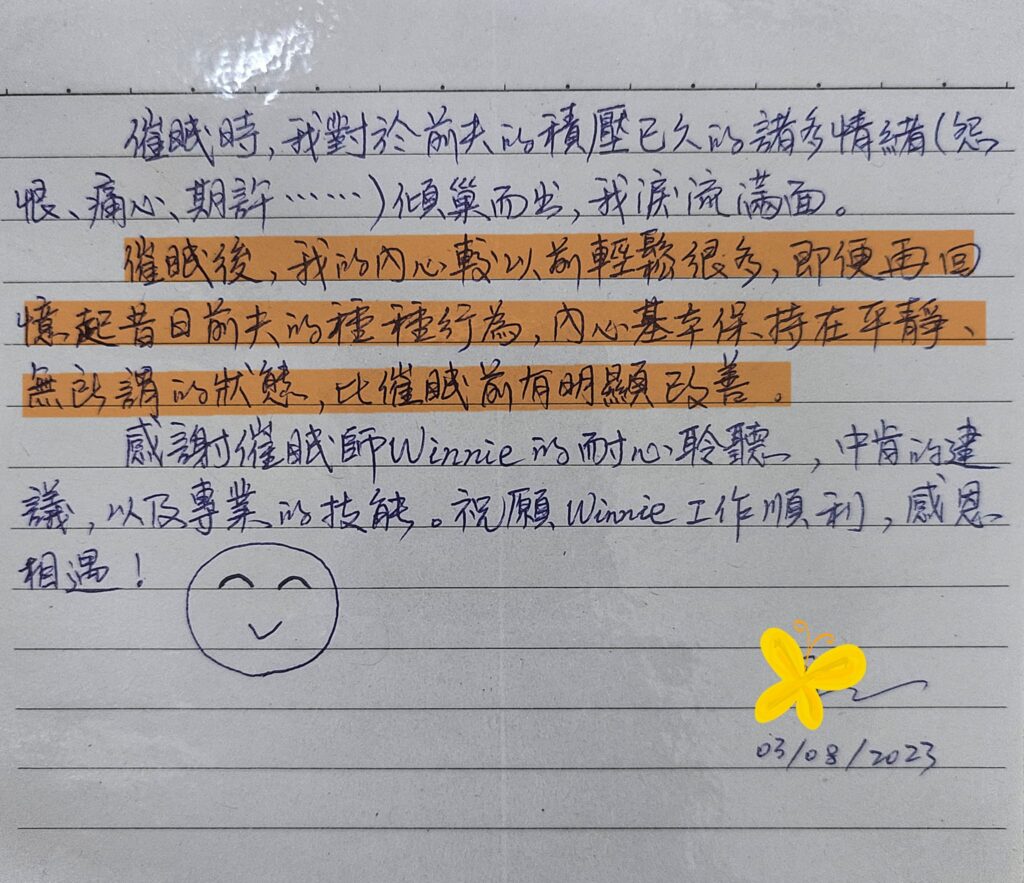 催眠時，我對於前夫的積壓已久的諸多情緒(怨
恨、痛心、期許……)傾巢而出，我淚流滿面。
催眠後，我的內心較以前輕鬆很多，即便再回
憶起昔日前夫的種種行為，內心基本保持在平靜、
無所謂的狀態，比催眠前有明顯改善。
感謝催眠師Winnie的耐心聆聽，中肯的建
議，以及專業的技能。祝願Winnie工作順利，感恩
相遇！
03/08/2023